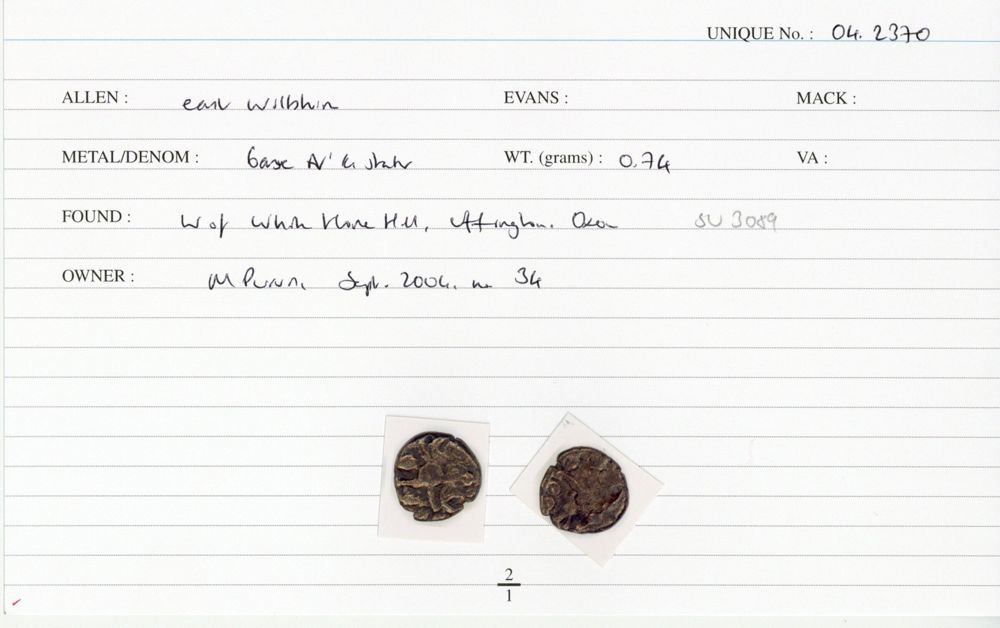 UNIQUE No. : 04. 2370
ALLEN : early Wiltshire EVANS : MACK :
METAL/DENOM : base AV 1/4 stater WT. (grams) : 0.74 VA :
FOUND : W of White Horse Hill, Uffington. Oxon SU 3089
OWNER : M Sept. 2004. no 34
2
1